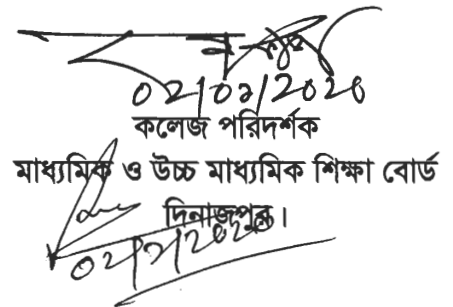 02/02/2020
কলেজ পরিদর্শক
মাধ্যমিক ও উচ্চ মাধ্যমিক শিক্ষা বোর্ড
দিনাজপুর।